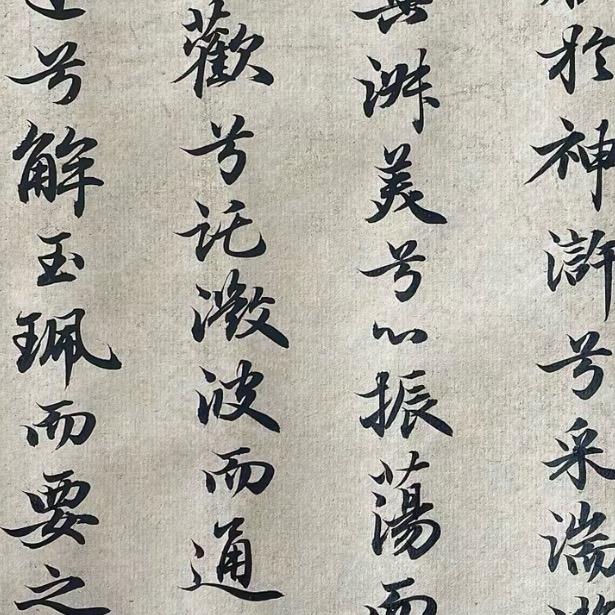 於神滸兮采湍
淑美兮心振蕩而
歡兮託微波而通
兮解玉珮而要之